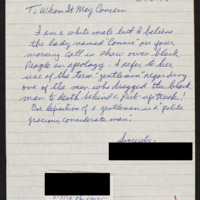 To Whom It May Concern
I am a white male but I believe
the lady named "Connie" on your
morning call in show owes black
People an apology. I refer to her
use of the term "gentlemen" regarding
one of the men who dragged the black
man to death behind a pick-up truck!
Our definition of a gentleman is a "polite
gracious, considerate man".
Sincerely,